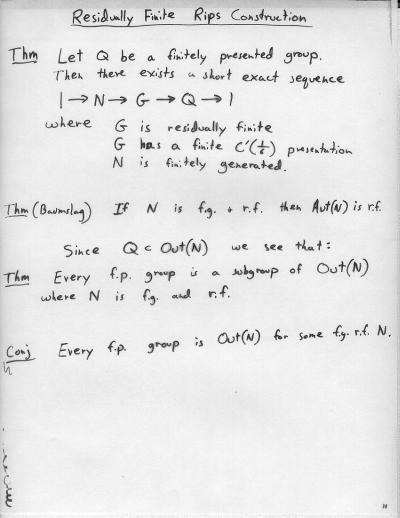 Residually Finite Rips Construction
Thm Let Q be a finitely presented group.
Then there exists a short exact sequence
1 → N → G → Q → 1
where G is residually finite
G has a finite C'(1/6) presentation
N is finitely generated.
Thm (Baumslag) If N is f.g. + r.f. then Aut(N) is r.f.
Since Q ⊂ Out(N) we see that:
Thm Every f.p. group is a subgroup of Out(N)
where N is f.g. and r.f.
Conj Every f.p. group is Out(N) for some f.g. r.f. N.